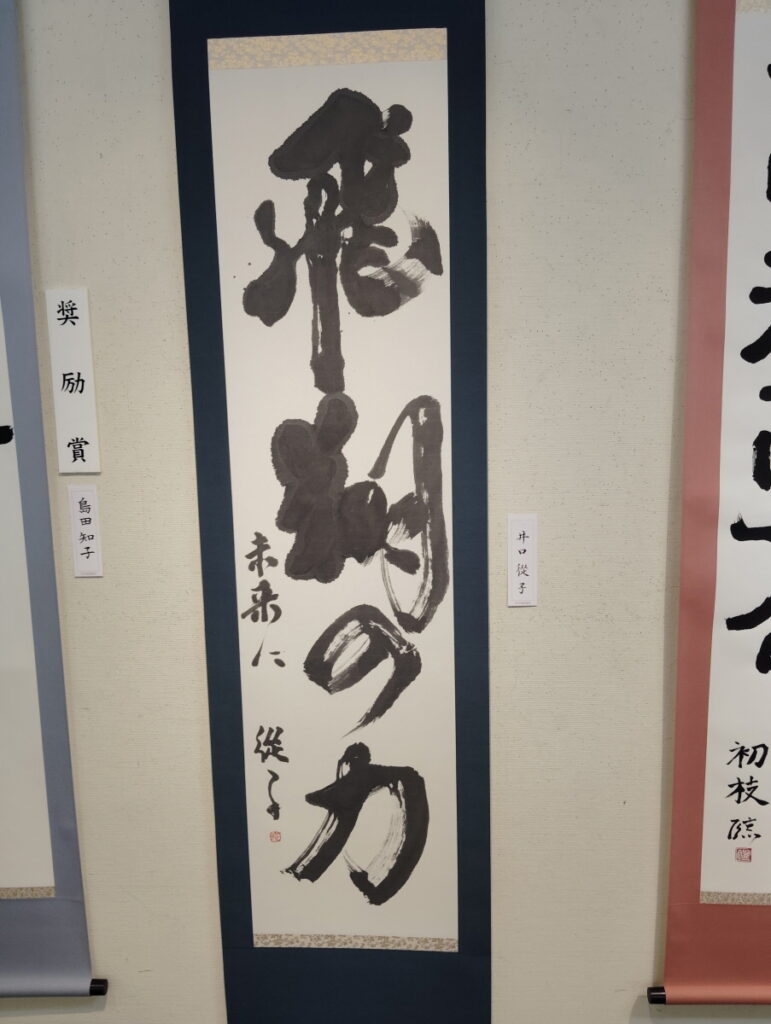 飛翔の力
未来に
從子
井口 從子
奨励賞
島田 知子
初枝臨